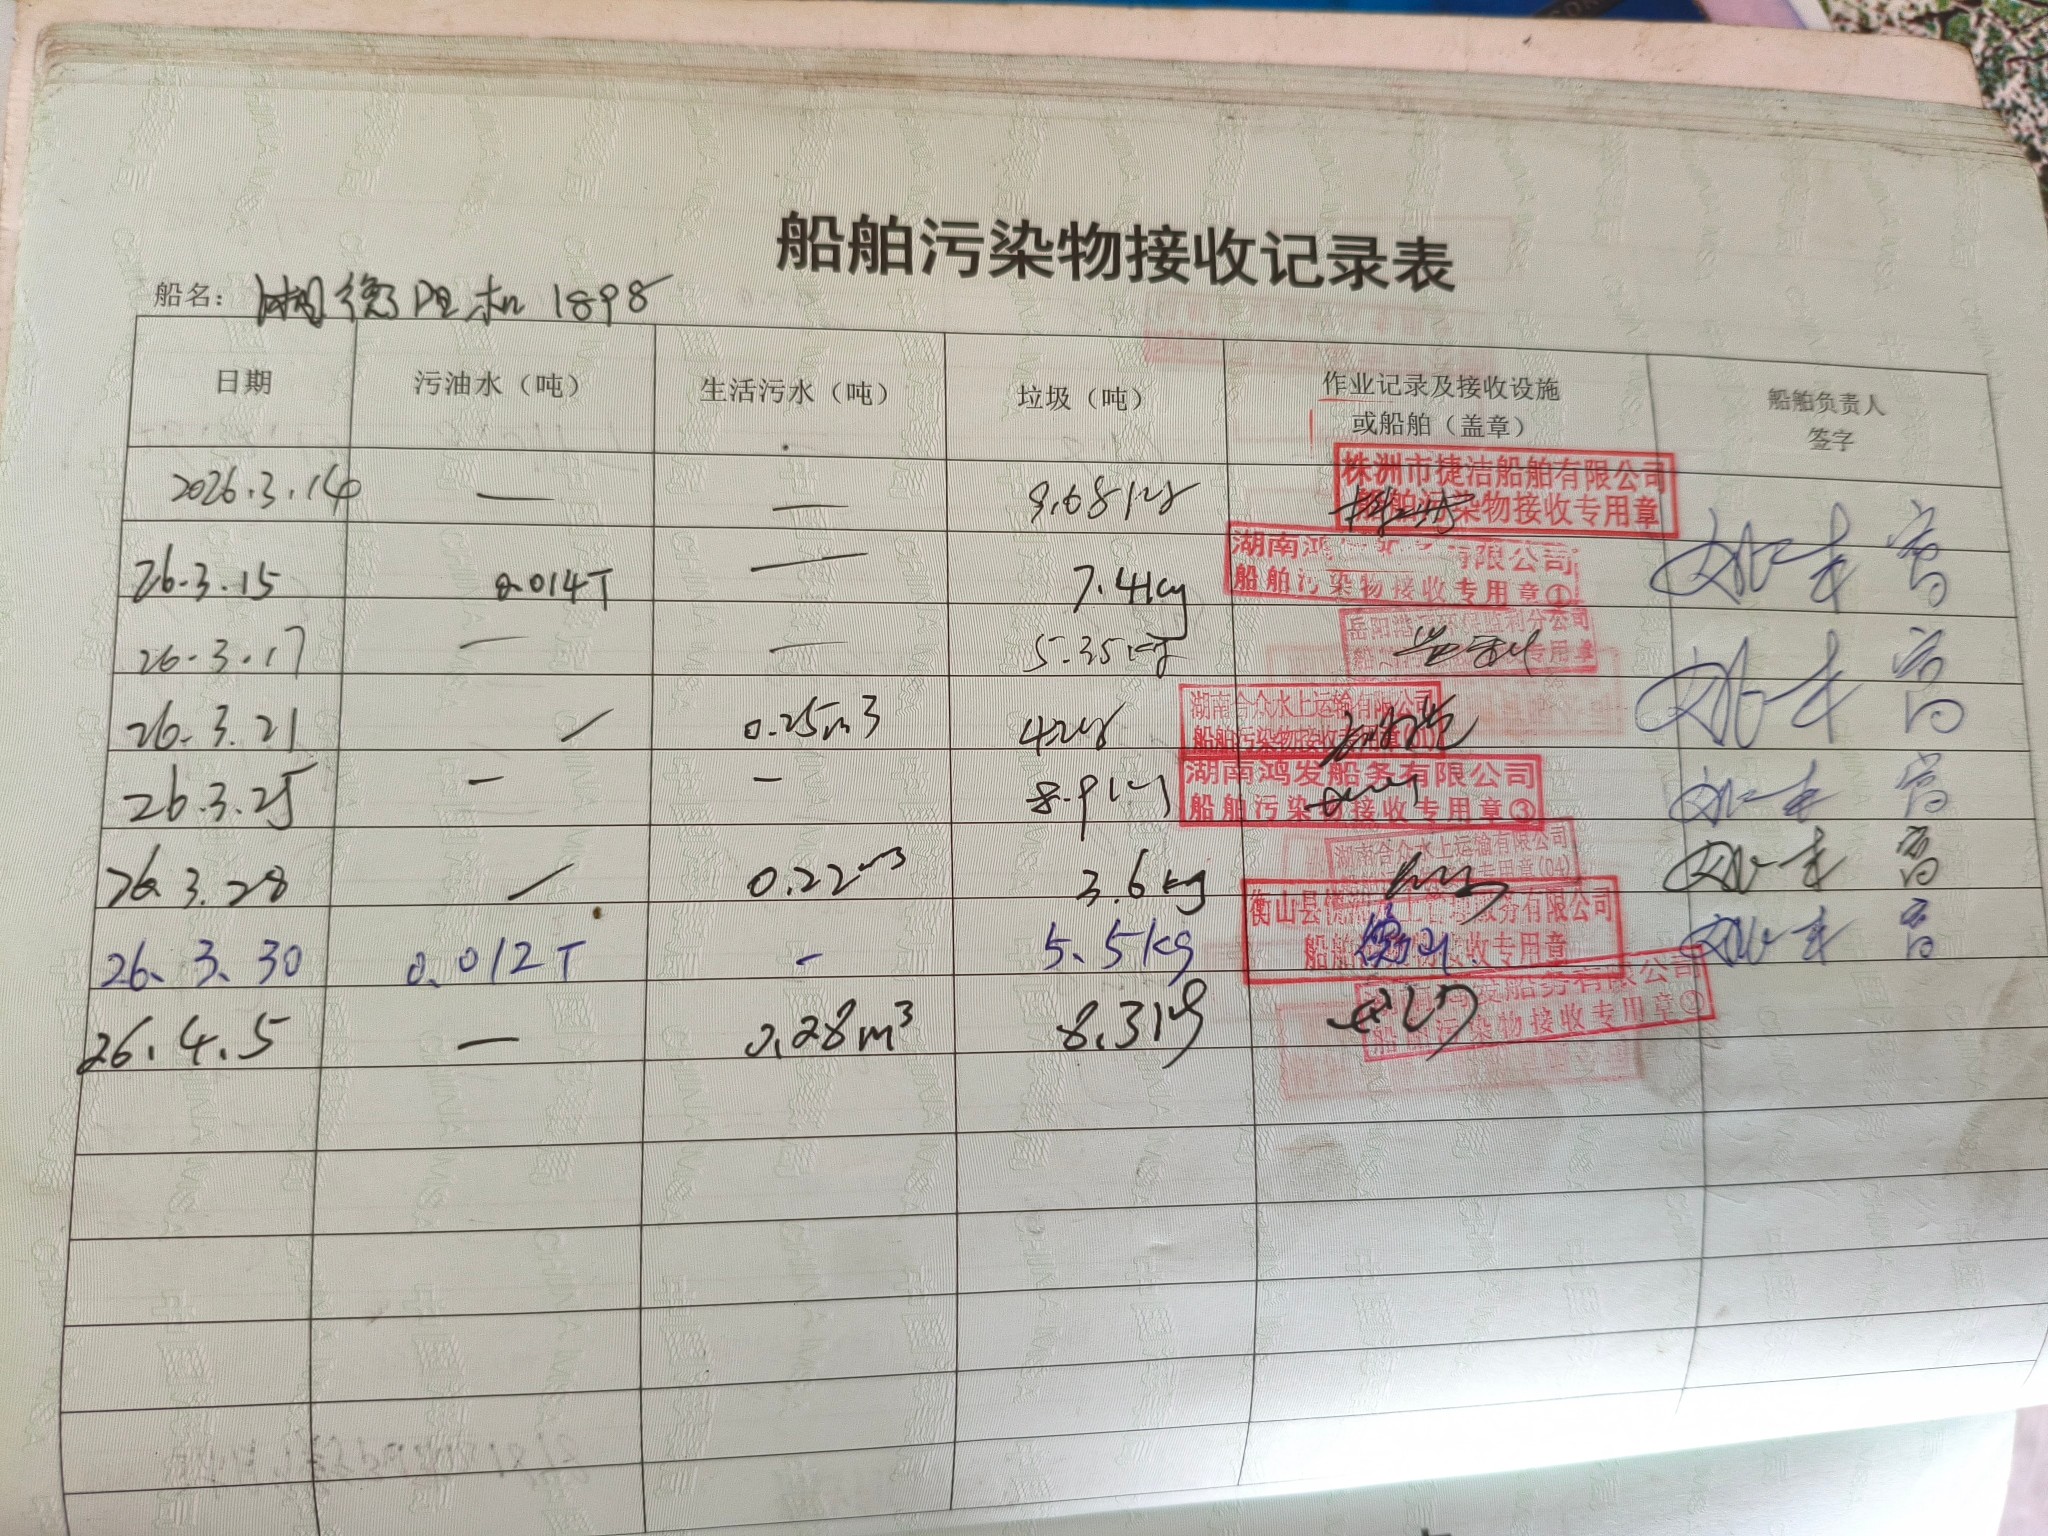 船舶污染物接收记录表
船名： 湘衡阳机1898
日期 污油水（吨） 生活污水（吨） 垃圾（吨） 作业记录及接收设施或船舶（盖章） 船舶负责人签字
2026.3.14 — — 9.68kg 株洲市捷洁船舶有限公司 船舶污染物接收专用章
26.3.15 0.014T — 7.4kg 湖南鸿 有限公司 船舶污染物接收专用章①
26.3.17 — — 5.35kg 岳阳 分公司 专用章
26.3.21 / 0.25m3 4.2kg 湖南合众水上运输有限公司 船舶污染物接收专用章
26.3.25 — — 8.9kg 湖南鸿发船务有限公司 船舶污染物接收专用章③
26.3.28 / 0.22m3 3.6kg 湖南合众水上运输有限公司 专用章(04)
26.3.30 0.012T - 5.5kg 衡山县 服务有限公司 船舶 接收专用章 衡山
26.4.5 — 0.28m³ 8.31kg 发船务有限公司 船舶污染物接收专用章